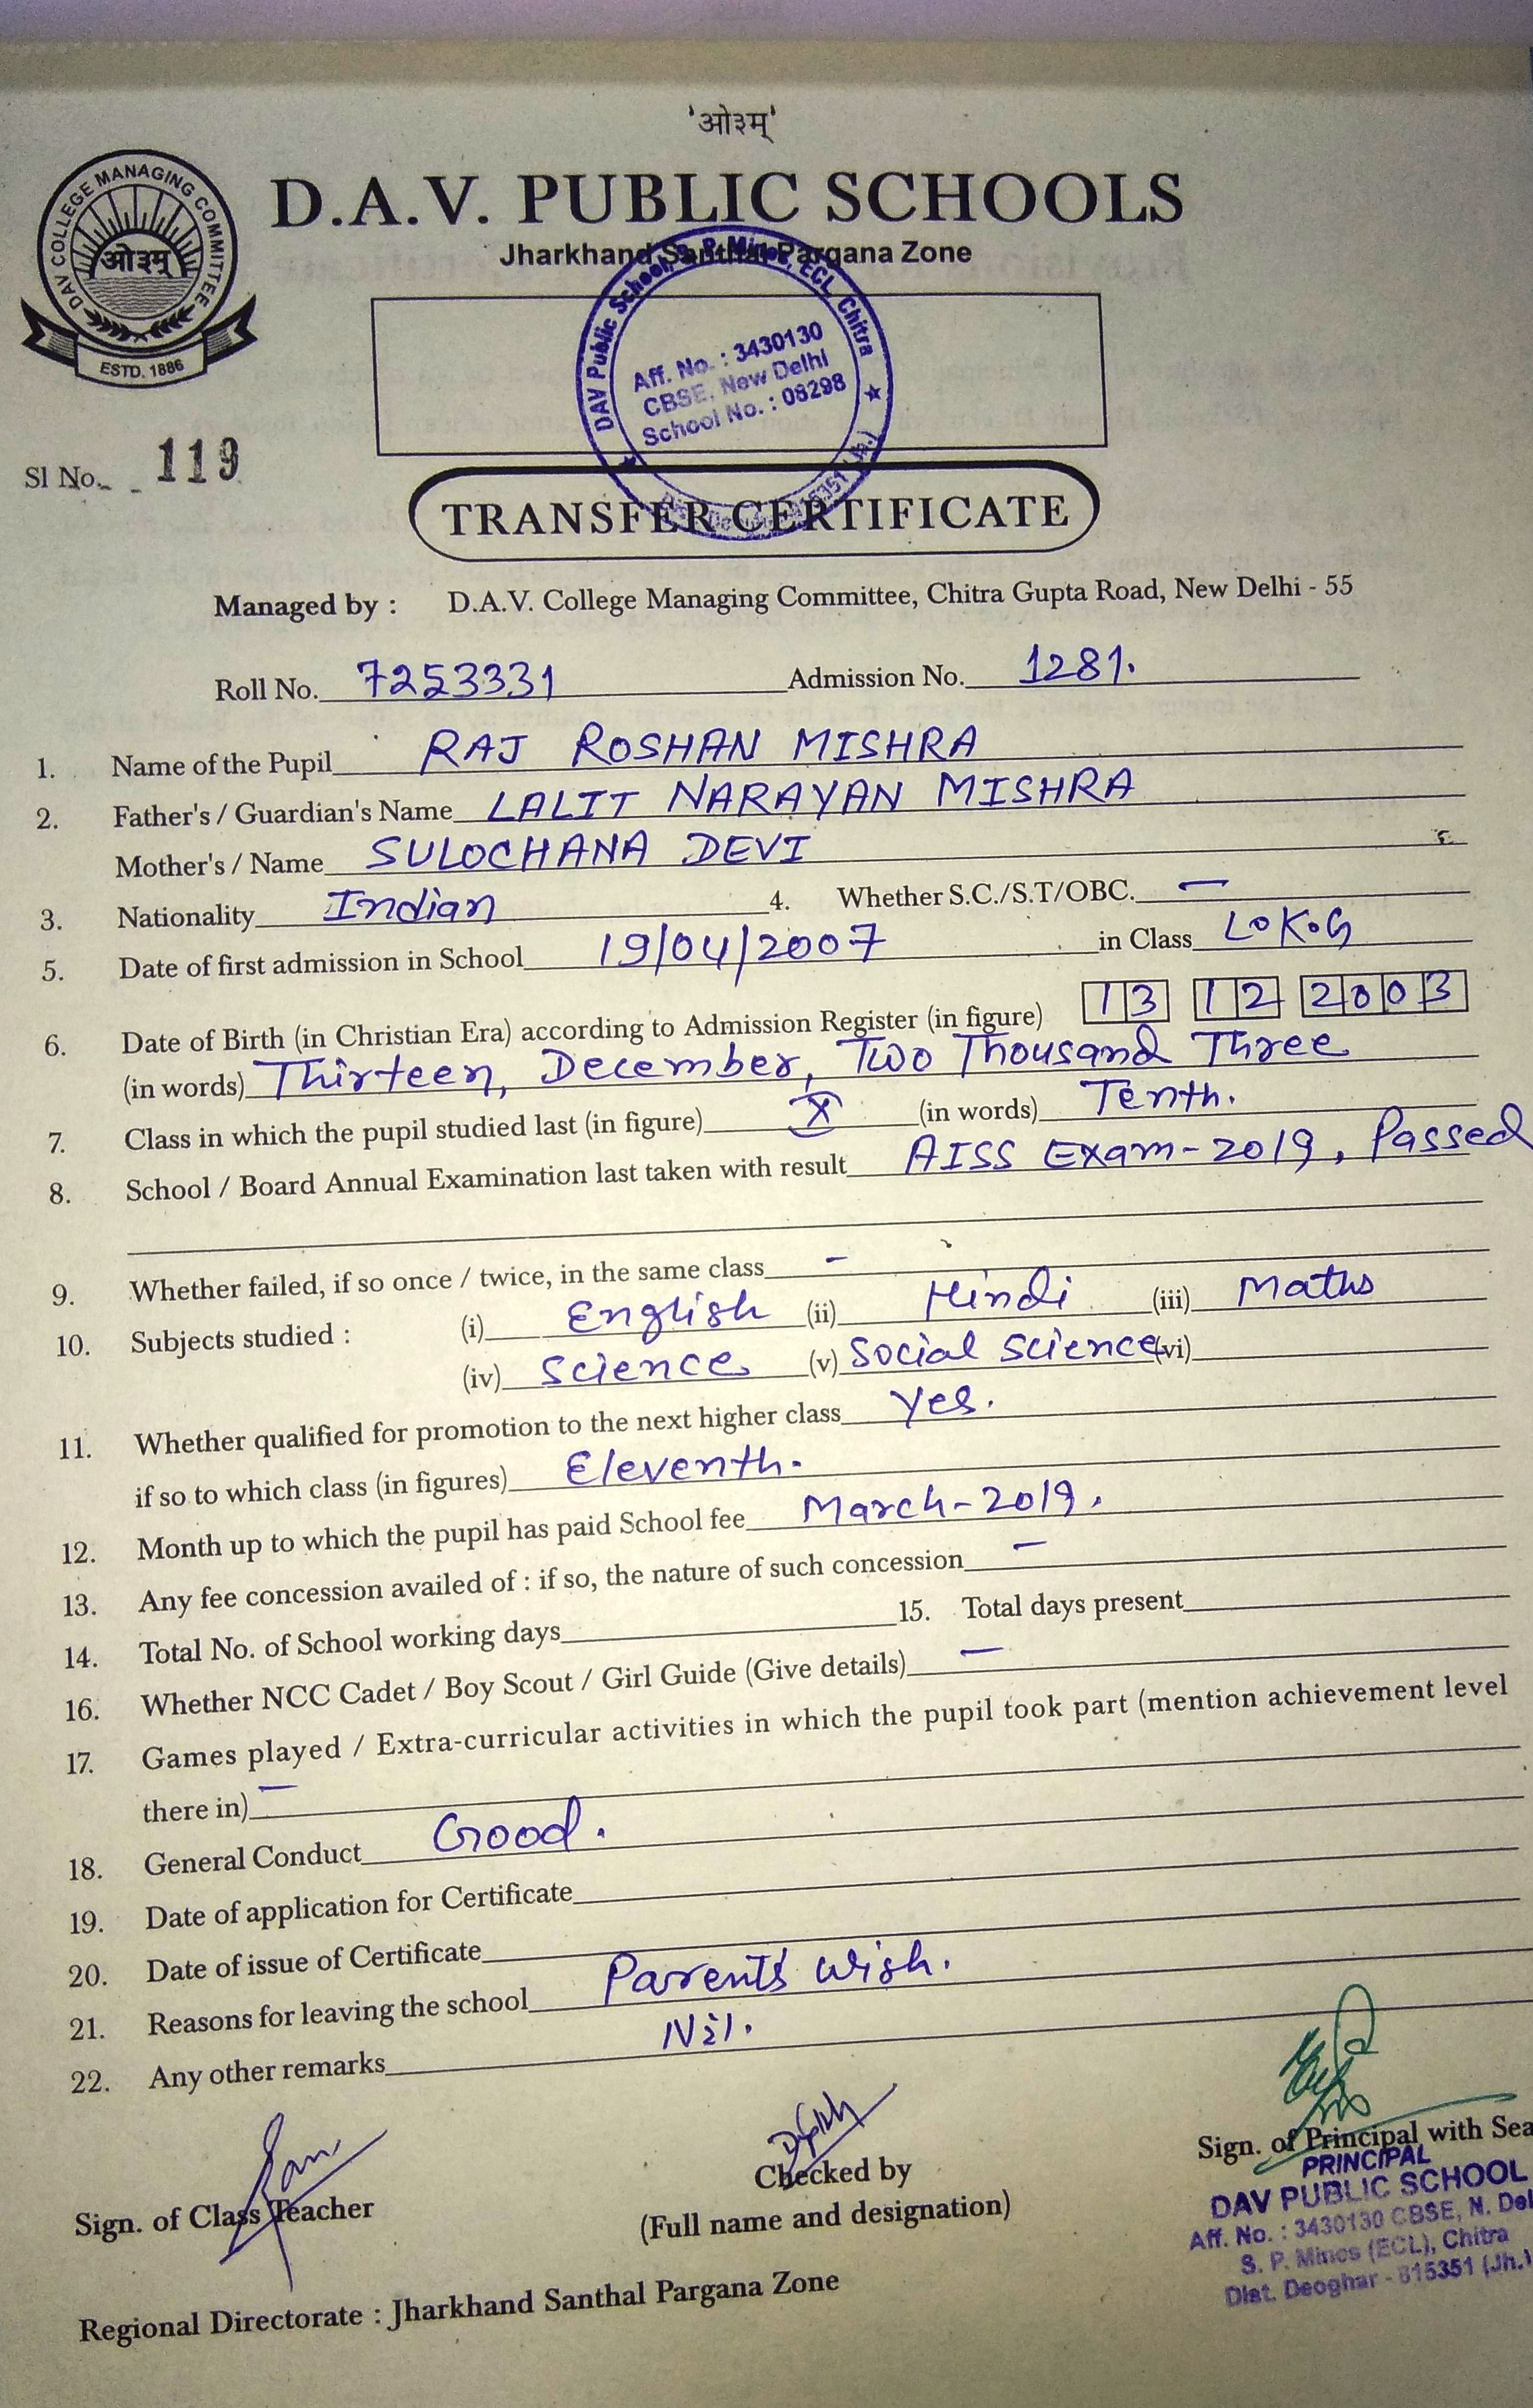 'ओ३म्'
D.A.V. PUBLIC SCHOOLS
Jharkhand Santhal Pargana Zone
DAV COLLEGE MANAGING COMMITTEE
ओ३म्
ESTD. 1886
DAV Public School, S. P. Mines, ECL, Chitra
Aff. No. : 3430130
CBSE, New Delhi
School No. : 08298
815351 (Jh.)
Sl No. 119
TRANSFER CERTIFICATE
Managed by : D.A.V. College Managing Committee, Chitra Gupta Road, New Delhi - 55
Roll No. 7253331 Admission No. 1281.
1. Name of the Pupil RAJ ROSHAN MISHRA
2. Father's / Guardian's Name LALIT NARAYAN MISHRA
Mother's / Name SULOCHANA DEVI
3. Nationality Indian 4. Whether S.C./S.T/OBC. —
5. Date of first admission in School 19/04/2007 in Class L.K.G
6. Date of Birth (in Christian Era) according to Admission Register (in figure) 13 12 2003
(in words) Thirteen, December, Two Thousand Three
7. Class in which the pupil studied last (in figure) X (in words) Tenth.
8. School / Board Annual Examination last taken with result AISS Exam-2019, Passed
9. Whether failed, if so once / twice, in the same class -
10. Subjects studied : (i) English (ii) Hindi (iii) Maths
(iv) Science (v) Social Science (vi)
11. Whether qualified for promotion to the next higher class Yes.
if so to which class (in figures) Eleventh.
12. Month up to which the pupil has paid School fee March-2019.
13. Any fee concession availed of : if so, the nature of such concession —
14. Total No. of School working days 15. Total days present
16. Whether NCC Cadet / Boy Scout / Girl Guide (Give details) —
17. Games played / Extra-curricular activities in which the pupil took part (mention achievement level
there in) —
18. General Conduct Good.
19. Date of application for Certificate
20. Date of issue of Certificate
21. Reasons for leaving the school Parent's Wish.
22. Any other remarks Nil.
Sign. of Class Teacher
Checked by
(Full name and designation)
Sign. of Principal with Sea
PRINCIPAL
DAV PUBLIC SCHOOL
Aff. No. : 3430130 CBSE, N. Del
S. P. Mines (ECL), Chitra
Dist. Deoghar - 815351 (Jh.)
Regional Directorate : Jharkhand Santhal Pargana Zone